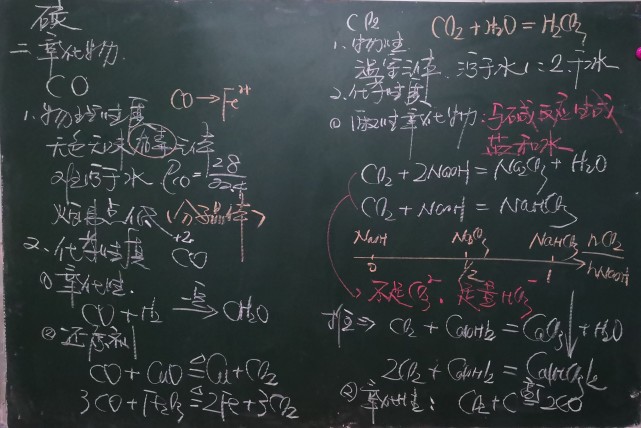 碳
二.氧化物
CO
CO → Fe²⁺
1.物理性质
无色无味 有毒气体
难溶于水 ρco = 28/22.4
熔沸点低(分子晶体)
2.化学性质 +2 CO
① 氧化性.
CO + H₂ → CH₂O
② 还原剂
CO + CuO ≙ Cu + CO₂
3CO + Fe₂O₃ ≙ 2Fe + 3CO₂
CO₂ CO₂ + H₂O = H₂CO₃
1.物性
温室气体 溶于水 1:2.于水
2.化学性质
① 酸性氧化物:与碱反应生成
盐和水
CO₂ + 2NaOH = Na₂CO₃ + H₂O
CO₂ + NaOH = NaHCO₃
NaOH Na₂CO₃ NaHCO₃ nCO₂/nNaOH
0 1/2 1
不足CO₃²⁻. 足量HCO₃⁻
⇒ CO₂ + Ca(OH)₂ = CaCO₃ + H₂O
2CO₂ + Ca(OH)₂ = Ca(HCO₃)₂
② 氧化性: CO₂ + C 高温 2CO